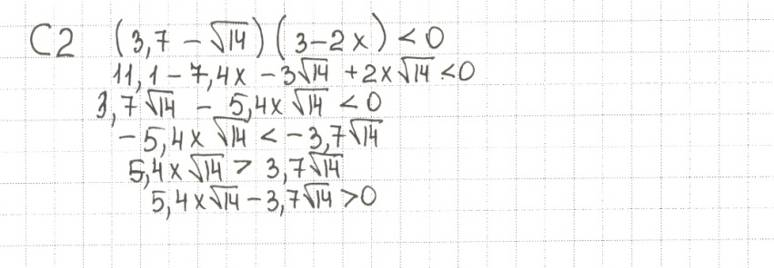 С2 (3,7 - √14)(3-2x) < 0
11,1 - 7,4x - 3√14 + 2x√14 < 0
3,7√14 - 5,4x√14 < 0
-5,4x√14 < -3,7√14
5,4x√14 > 3,7√14
5,4x√14 - 3,7√14 > 0